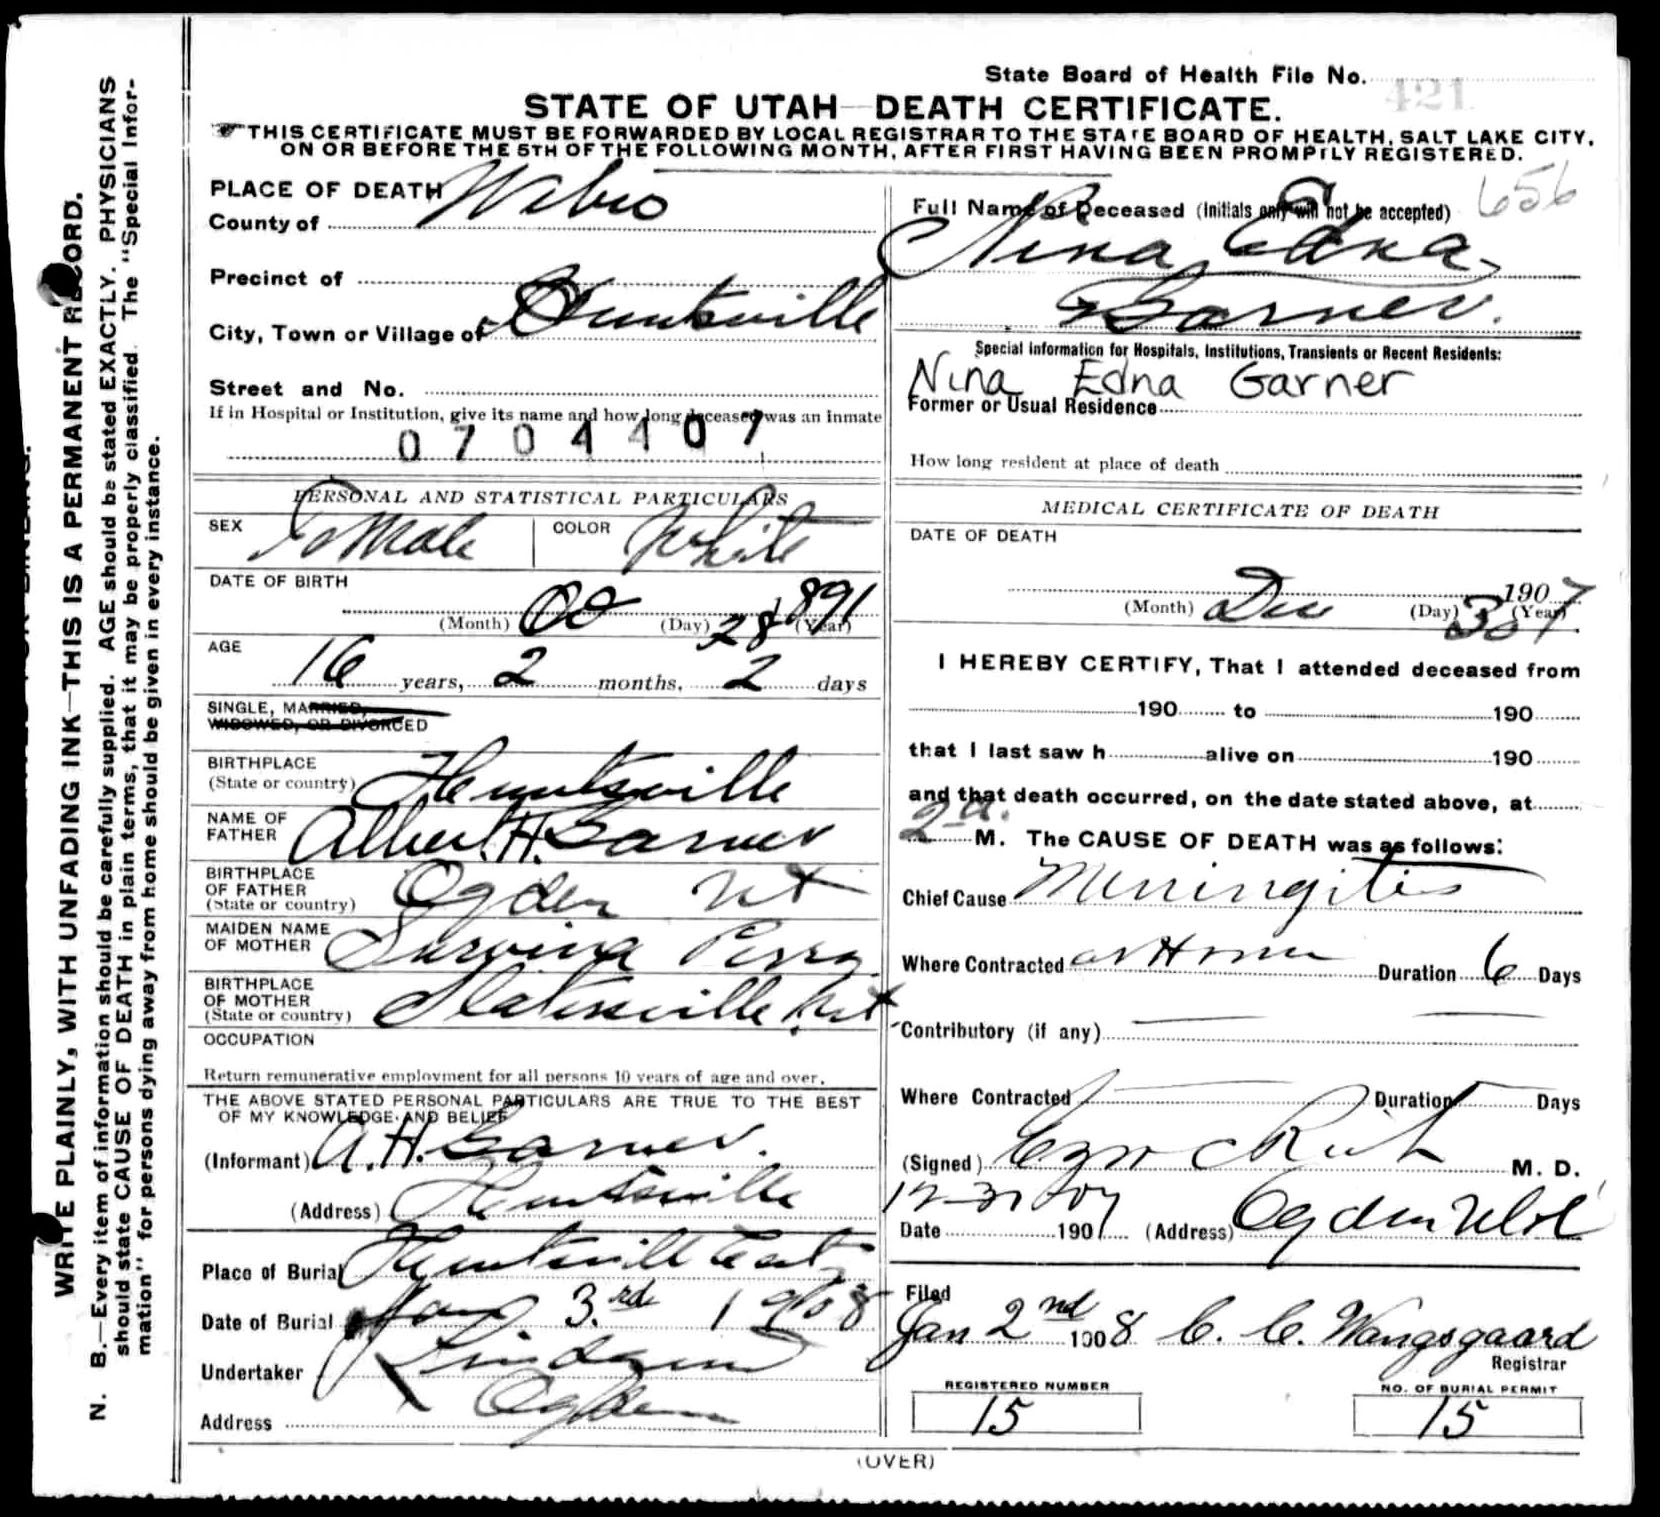 State Board of Health File No. 421
STATE OF UTAH—DEATH CERTIFICATE.
THIS CERTIFICATE MUST BE FORWARDED BY LOCAL REGISTRAR TO THE STATE BOARD OF HEALTH, SALT LAKE CITY,
ON OR BEFORE THE 5TH OF THE FOLLOWING MONTH, AFTER FIRST HAVING BEEN PROMPTLY REGISTERED.
WRITE PLAINLY, WITH UNFADING INK—THIS IS A PERMANENT RECORD.
N. B.—Every item of information should be carefully supplied. AGE should be stated EXACTLY. PHYSICIANS
should state CAUSE OF DEATH in plain terms, that it may be properly classified. The "Special Infor-
mation" for persons dying away from home should be given in every instance.
PLACE OF DEATH
County of Weber
Precinct of
City, Town or Village of Huntsville
Street and No.
If in Hospital or Institution, give its name and how long deceased was an inmate
0704407
PERSONAL AND STATISTICAL PARTICULARS
SEX Female COLOR White
DATE OF BIRTH
(Month) Oct (Day) 28 (Year) 1891
AGE
16 years, 2 months, 2 days
SINGLE, MARRIED,
WIDOWED, OR DIVORCED
BIRTHPLACE
(State or country) Huntsville
NAME OF
FATHER Albert H. Garner
BIRTHPLACE
OF FATHER
(State or country) Ogden Ut
MAIDEN NAME
OF MOTHER Perry
BIRTHPLACE
OF MOTHER
(State or country) Slaterville Ut
OCCUPATION
Return remunerative employment for all persons 10 years of age and over.
THE ABOVE STATED PERSONAL PARTICULARS ARE TRUE TO THE BEST
OF MY KNOWLEDGE AND BELIEF
(Informant) A. H. Garner.
(Address) Huntsville
Place of Burial Huntsville
Date of Burial Jan 3.rd 1908
Undertaker
Address Ogden
Full Name of Deceased (Initials only will not be accepted) 656
Nina Edna
Garner.
Special Information for Hospitals, Institutions, Transients or Recent Residents:
Nina Edna Garner
Former or Usual Residence
How long resident at place of death
MEDICAL CERTIFICATE OF DEATH
DATE OF DEATH
1907
(Month) Dec (Day) 30 (Year) 7
I HEREBY CERTIFY, That I attended deceased from
190 to 190
that I last saw h alive on 190
and that death occurred, on the date stated above, at
2 a. M. The CAUSE OF DEATH was as follows:
Chief Cause Meningitis
Where Contracted at Home Duration 6 Days
Contributory (if any)
Where Contracted Duration Days
(Signed) Ezra C Rich M. D.
12-31 1907
Date 190 (Address) Ogden Utah
Filed
Jan 2nd 1908 C. C. Wangsgaard
Registrar
REGISTERED NUMBER
15
NO. OF BURIAL PERMIT
15
(OVER)